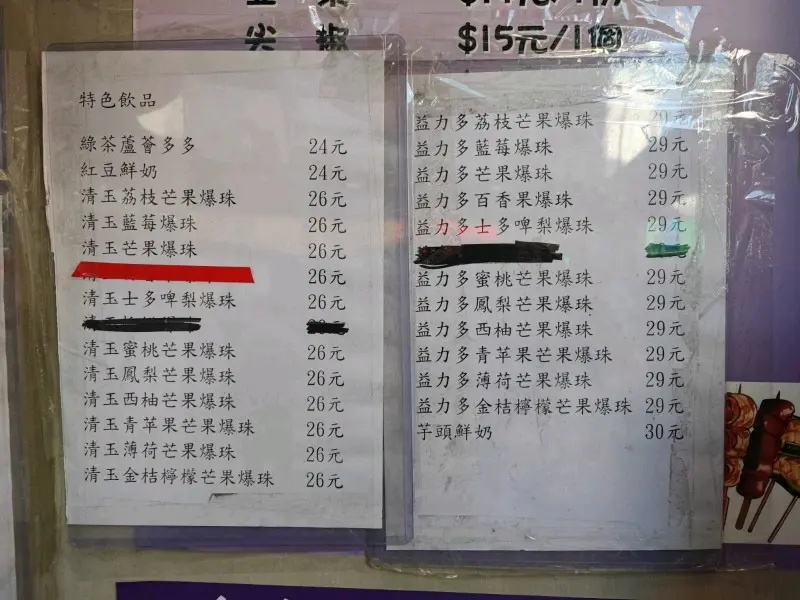 尖椒 $15元/1個
特色飲品
綠茶蘆薈多多 24元
紅豆鮮奶 24元
清玉荔枝芒果爆珠 26元
清玉藍莓爆珠 26元
清玉芒果爆珠 26元
26元
清玉士多啤梨爆珠 26元
清玉蜜桃芒果爆珠 26元
清玉鳳梨芒果爆珠 26元
清玉西柚芒果爆珠 26元
清玉青苹果芒果爆珠 26元
清玉薄荷芒果爆珠 26元
清玉金桔檸檬芒果爆珠 26元
益力多荔枝芒果爆珠 29元
益力多藍莓爆珠 29元
益力多芒果爆珠 29元
益力多百香果爆珠 29元
益力多士多啤梨爆珠 29元
益力多蜜桃芒果爆珠 29元
益力多鳳梨芒果爆珠 29元
益力多西柚芒果爆珠 29元
益力多青苹果芒果爆珠 29元
益力多薄荷芒果爆珠 29元
益力多金桔檸檬芒果爆珠 29元
芋頭鮮奶 30元